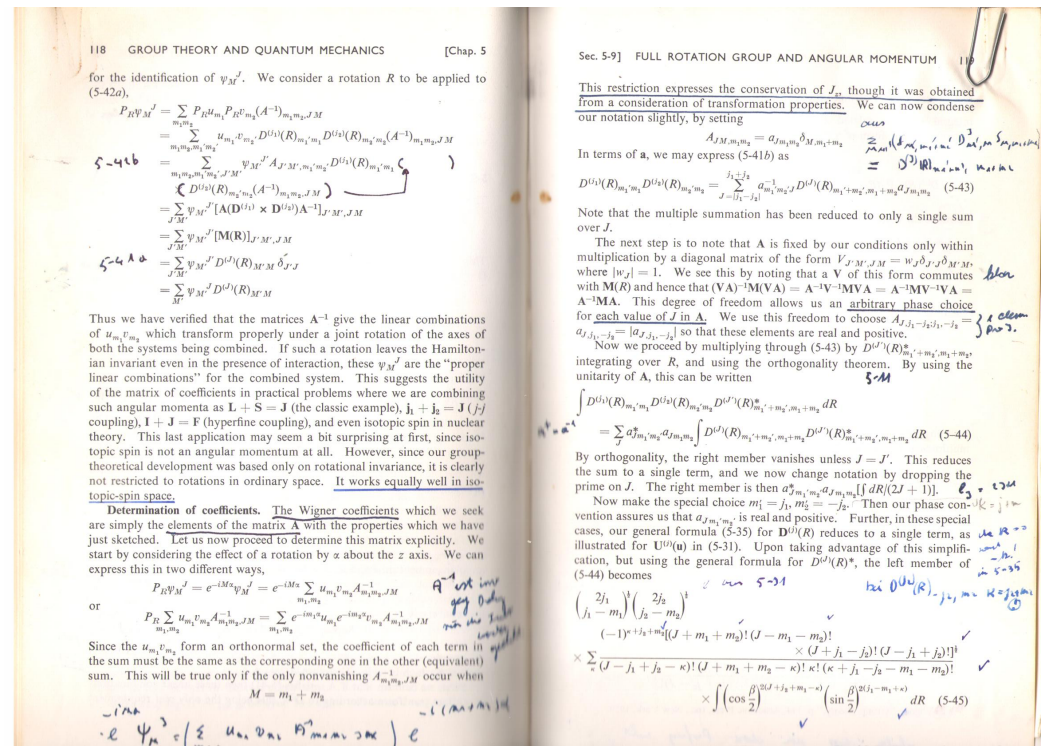 118 GROUP THEORY AND QUANTUM MECHANICS [Chap. 5
for the identification of ψ_M^J. We consider a rotation R to be applied to
(5-42a),
P_Rψ_M^J = Σ_{m₁m₂} P_Ru_{m₁}P_Rv_{m₂}(A⁻¹)_{m₁m₂,JM}
= Σ_{m₁m₂,m₁'m₂'} u_{m₁'}v_{m₂'}D^{(j₁)}(R)_{m₁'m₁}D^{(j₂)}(R)_{m₂'m₂}(A⁻¹)_{m₁m₂,JM}
5-41b = Σ_{m₁m₂,m₁'m₂',J'M'} ψ_{M'}^{J'}A_{J'M',m₁'m₂'}D^{(j₁)}(R)_{m₁'m₁} ( )
( D^{(j₂)}(R)_{m₂'m₂}(A⁻¹)_{m₁m₂,JM} )
= Σ_{J'M'} ψ_{M'}^{J'}[A(D^{(j₁)} × D^{(j₂)})A⁻¹]_{J'M',JM}
= Σ_{J'M'} ψ_{M'}^{J'}[M(R)]_{J'M',JM}
5-41a = Σ_{J'M'} ψ_{M'}^{J'}D^{(J)}(R)_{M'M} δ_{J'J}
= Σ_{M'} ψ_{M'}^J D^{(J)}(R)_{M'M}
Thus we have verified that the matrices A⁻¹ give the linear combinations
of u_{m₁}v_{m₂} which transform properly under a joint rotation of the axes of
both the systems being combined. If such a rotation leaves the Hamilton-
ian invariant even in the presence of interaction, these ψ_M^J are the "proper
linear combinations" for the combined system. This suggests the utility
of the matrix of coefficients in practical problems where we are combining
such angular momenta as L + S = J (the classic example), j₁ + j₂ = J (j-j
coupling), I + J = F (hyperfine coupling), and even isotopic spin in nuclear
theory. This last application may seem a bit surprising at first, since iso-
topic spin is not an angular momentum at all. However, since our group-
theoretical development was based only on rotational invariance, it is clearly
not restricted to rotations in ordinary space. It works equally well in iso-
topic-spin space.
Determination of coefficients. The Wigner coefficients which we seek
are simply the elements of the matrix A with the properties which we have
just sketched. Let us now proceed to determine this matrix explicitly. We
start by considering the effect of a rotation by α about the z axis. We can
express this in two different ways,
P_Rψ_M^J = e^{-iMα}ψ_M^J = e^{-iMα} Σ_{m₁,m₂} u_{m₁}v_{m₂}A⁻¹_{m₁m₂,JM}
or
P_R Σ_{m₁,m₂} u_{m₁}v_{m₂}A⁻¹_{m₁m₂,JM} = Σ_{m₁,m₂} e^{-im₁α}u_{m₁}e^{-im₂α}v_{m₂}A⁻¹_{m₁m₂,JM}
Since the u_{m₁}v_{m₂} form an orthonormal set, the coefficient of each term in
the sum must be the same as the corresponding one in the other (equivalent)
sum. This will be true only if the only nonvanishing A⁻¹_{m₁m₂,JM} occur when
M = m₁ + m₂
Sec. 5-9] FULL ROTATION GROUP AND ANGULAR MOMENTUM
This restriction expresses the conservation of J_z, though it was obtained
from a consideration of transformation properties. We can now condense
our notation slightly, by setting
A_{JM,m₁m₂} = a_{Jm₁m₂}δ_{M,m₁+m₂}
In terms of a, we may express (5-41b) as
D^{(j₁)}(R)_{m₁'m₁}D^{(j₂)}(R)_{m₂'m₂} = Σ_{J=|j₁-j₂|}^{j₁+j₂} a⁻¹_{m₁'m₂'J}D^{(J)}(R)_{m₁'+m₂',m₁+m₂}a_{Jm₁m₂} (5-43)
Note that the multiple summation has been reduced to only a single sum
over J.
The next step is to note that A is fixed by our conditions only within
multiplication by a diagonal matrix of the form V_{J'M',JM} = w_Jδ_{J'J}δ_{M'M},
where |w_J| = 1. We see this by noting that a V of this form commutes
with M(R) and hence that (VA)⁻¹M(VA) = A⁻¹V⁻¹MVA = A⁻¹MV⁻¹VA =
A⁻¹MA. This degree of freedom allows us an arbitrary phase choice
for each value of J in A. We use this freedom to choose A_{J,j₁-j₂;j₁,-j₂} =
a_{J,j₁,-j₂} = |a_{J,j₁,-j₂}| so that these elements are real and positive.
Now we proceed by multiplying through (5-43) by D^{(J')}(R)*_{m₁'+m₂',m₁+m₂},
integrating over R, and using the orthogonality theorem. By using the
unitarity of A, this can be written
∫ D^{(j₁)}(R)_{m₁'m₁}D^{(j₂)}(R)_{m₂'m₂}D^{(J')}(R)*_{m₁'+m₂',m₁+m₂} dR
= Σ_J a*_{Jm₁'m₂'}a_{Jm₁m₂} ∫ D^{(J)}(R)_{m₁'+m₂',m₁+m₂}D^{(J')}(R)*_{m₁'+m₂',m₁+m₂} dR (5-44)
By orthogonality, the right member vanishes unless J = J'. This reduces
the sum to a single term, and we now change notation by dropping the
prime on J. The right member is then a*_{Jm₁'m₂'}a_{Jm₁m₂}[∫ dR/(2J + 1)].
Now make the special choice m₁' = j₁, m₂' = -j₂. Then our phase con-
vention assures us that a_{Jm₁'m₂'} is real and positive. Further, in these special
cases, our general formula (5-35) for D^{(j)}(R) reduces to a single term, as
illustrated for U^{(j)}(u) in (5-31). Upon taking advantage of this simplifi-
cation, but using the general formula for D^{(J)}(R)*, the left member of
(5-44) becomes
(2j₁ / j₁ - m₁)^½ (2j₂ / j₂ - m₂)^½
(-1)^{κ+j₂+m₂}[(J + m₁ + m₂)! (J - m₁ - m₂)!
× (J + j₁ - j₂)! (J - j₁ + j₂)!]^½
× Σ_κ (J - j₁ + j₂ - κ)! (J + m₁ + m₂ - κ)! κ! (κ + j₁ - j₂ - m₁ - m₂)!
× ∫ (cos β/2)^{2(J+j₂+m₁-κ)} (sin β/2)^{2(j₁-m₁+κ)} dR (5-45)